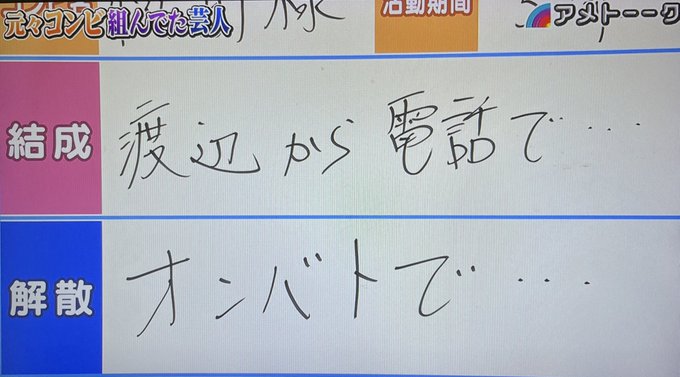 元々コンビ組んでた芸人
活動期間
アメトーーク
結成
渡辺から電話で····
解散
オンバトで····